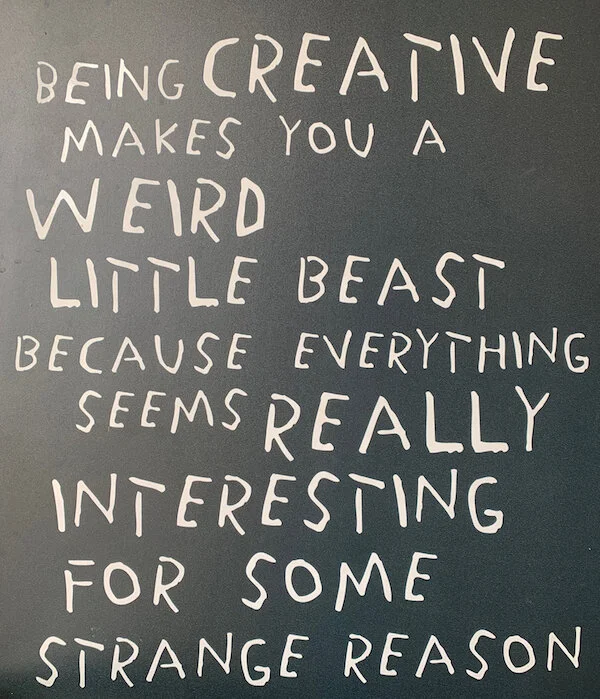 BEING CREATIVE
MAKES YOU A
WEIRD
LITTLE BEAST
BECAUSE EVERYTHING
SEEMS REALLY
INTERESTING
FOR SOME
STRANGE REASON